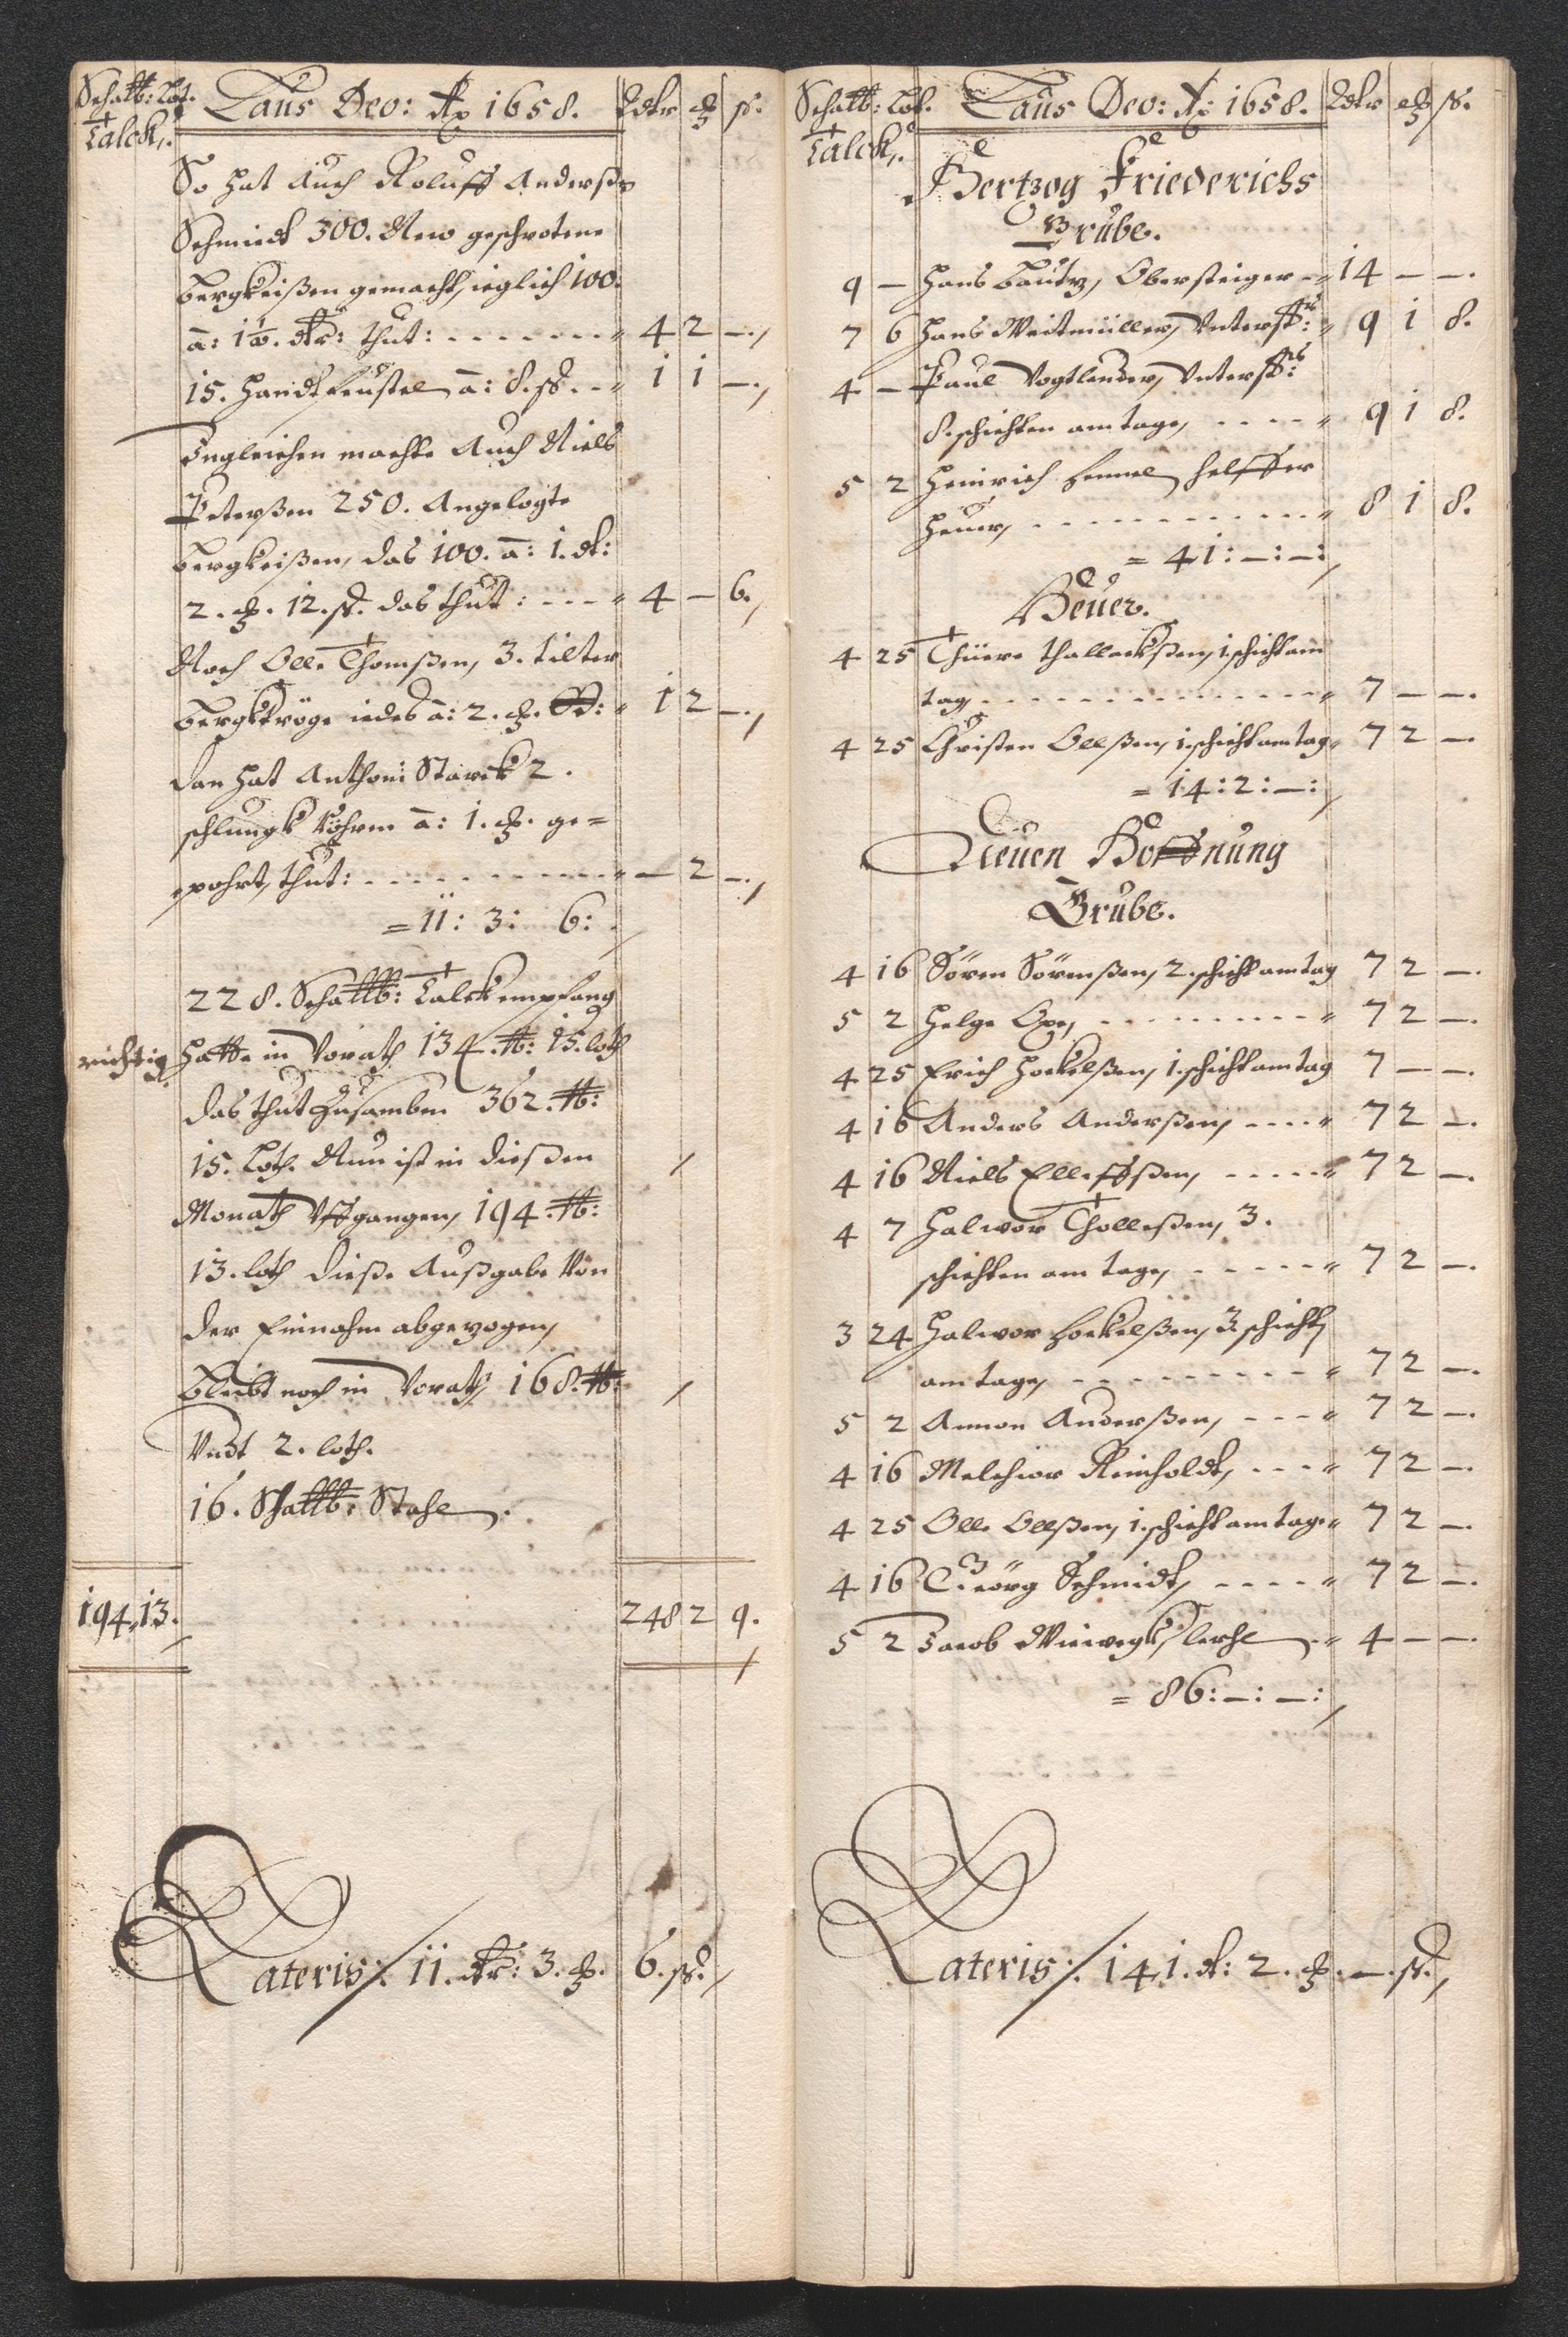 Schallb: Lot. Laus Deo: Ao 1658. Rdtr ß.
Talck,.
So hat auch Roluff Anderßen
Schmiedt 300. New geschrotene
Bergkeißen gemacht, ieglich 100.
ā: 1½. dtr: thut: - - - - - - - 4 2 —.
15. Handtfeustel, ā: 8. ß. - - 1 1 —.
Ingleichen machte Auch Niels
Peterßen 250. Angelegte
Bergkeißen, das 100. ā: 1. dt:
2. 12. ß. das thut: - - - - 4 — 6.
Noch Olle Thomßen, 3. tilter
Bergktröge iedes ā: 2. 1 2 —.
Dan hat Anthoni Starck 2.
schlungk Röhren ā: 1. ge=
pohrt, thut: - - - - - - - - - — 2 —.
= 11: 3: 6:
228. Schallb: Talck empfang
richtig Hatte in Vorath 134. lb: 15. loth
das thut Zusamben 362. lb:
15. Loth. Nun ist in dießen
Monath Vffgangen, 194. lb:
13. loth dieße Außgabe Von
der Einnahm abgezogen,
bleibt noch in Vorath, 168. lb:
Vndt 2. loth.
16. Schallb: Stahl.
194,13. 248 2 9.
Lateris: 11. dtr: 3. 6. ß.
Schallb: Lot. Laus Deo: Ao 1658. Rdtr ß.
Talck,.
Hertzog Friederichs
Grube.
9 — Hans Bautz, Obersteiger - 14 — —.
7 6 Hans Weitmüller, Unterst: 9 1 8.
4 — Paul Vogtlender, Unterst:
8. schichten am tage, - - - - 9 1 8.
5 2 Heinrich Hemel helffer
Heuer, - - - - - - - - - - - - 8 1 8.
= 41: —: —:
Heuer.
4 25 Thüere Thallackßen, 1. schicht am
tag, - - - - - - - - - - - - - 7 — —.
4 25 Christen Ollßen, 1. schicht am tag 7 2 —.
= 14: 2: —:
Neuen Hoffnung
Grube.
4 16 Sören Sörenßen, 2. schicht am tag 7 2 —.
5 2 Helge Oxe, - - - - - - - - - 7 2 —.
4 25 Erich Hoekelßen, 1. schicht am tag 7 — —.
4 16 Anders Anderßen, - - - - 7 2 —.
4 16 Niels Elleffßen, - - - - - 7 2 —.
4 7 Halwor Tholleßen, 3.
schichten am tage, - - - - - 7 2 —.
3 24 Halwor Hoekelßen, 3. schicht
am tage, - - - - - - - - - 7 2 —.
5 2 Ammon Anderßen, - - - 7 2 —.
4 16 Melchior Reinholdt, - - - 7 2 —.
4 25 Olle Ollßen, 1. schicht am tage 7 2 —.
4 16 Georg Schmidt, - - - - 7 2 —.
5 2 Jacob Viewegk, 4 — —.
= 86: —: —:
Lateris: 141. dt: 2. —. ß.